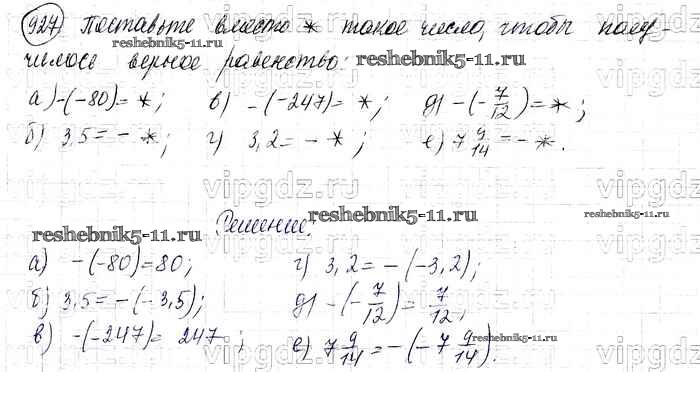 927 Поставьте вместо * такое число, чтобы полу-
reshebnik5-11.ru
чилось верное равенство:
reshebnik5-11.ru
а) -(-80)= *; в) -(-247)= *; д) -(-7/12)= *;
б) 3,5= - *; г) 3,2= - *; е) 7 9/14 = - *.
vipgdz.ru vipgdz.ru vipgdz.ru
Решение:
reshebnik5-11.ru
reshebnik5-11.ru
reshebnik5-11.ru
vipgdz.ru vipgdz.ru vipgdz.ru
а) -(-80)=80; г) 3,2= -(-3,2);
б) 3,5= -(-3,5); д) -(-7/12)= 7/12;
в) -(-247)= 247; е) 7 9/14 = -(-7 9/14).
reshebnik5-11.ru
vipgdz.ru vipgdz.ru vipgdz.ru